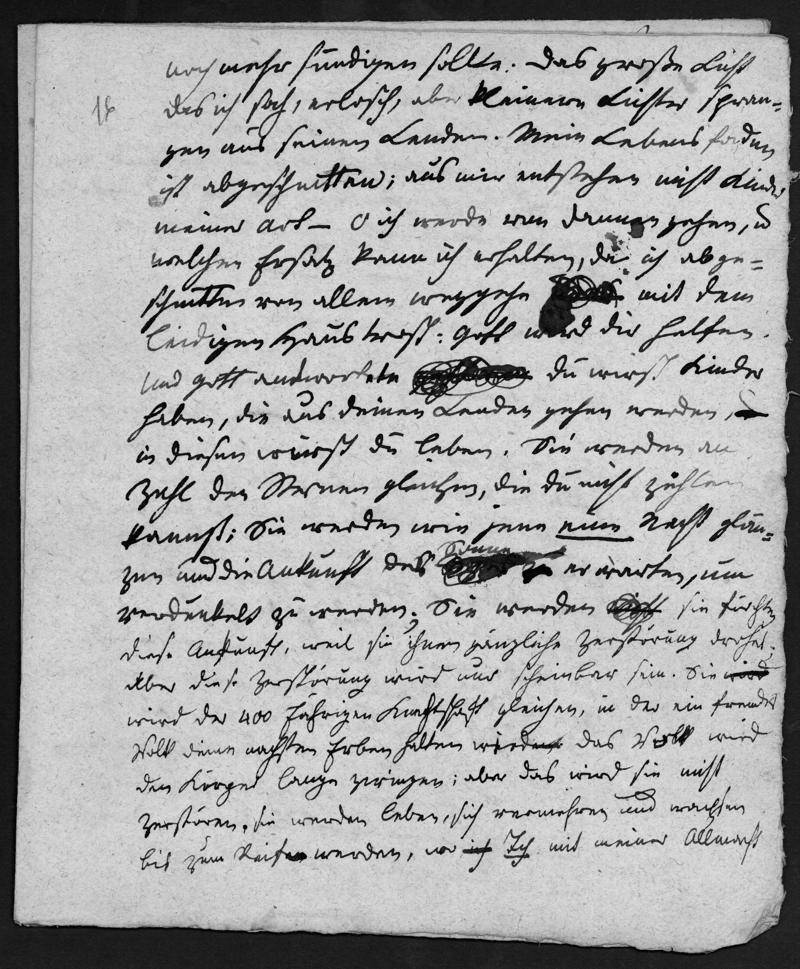 noch mehr sündigen sollte. Das große Licht
das ich sah, erlosch, aber kleinere Lichter spran=
gen aus seinen Lenden. Mein Lebens faden
ist abgeschnitten; aus mir entstehen nicht Kinder
meiner Art – O ich werde von dannen gehen, u
welchen Ersatz kann ich erhalten, da ich abge=
schnitten von allem weggehe mit dem
leidigen Haus trost: Gott wird dir helfen.
Und Gott antwortete du wirst Kinder
haben, die aus deinen Lenden gehen werden,
in diesen wirst du leben. Sie werden an
Zahl den Sternen gleichen, die du nicht zählen
kannst; Sie werden wie jene eine Nacht glän=
zen und die Ankunft des erwarten, um
verdunkelt zu werden. Sie werden sie fürchten
diese Ankunft, weil sie ihnen gänzliche Zerstörung drohet;
Aber diese Zerstörung wird nur scheinbar sein. Sie wird
wird der 400 Jährigen Knechtschaft gleichen, in der ein fremdes
Volk deine nächsten Erben halten das Volk wird
den Körper lange zwingen; aber das wird sie nicht
zerstören. sie werden leben, sich vermehren und wachsen
bis zum Reif werden, wo ich Ich mit meiner Allmacht